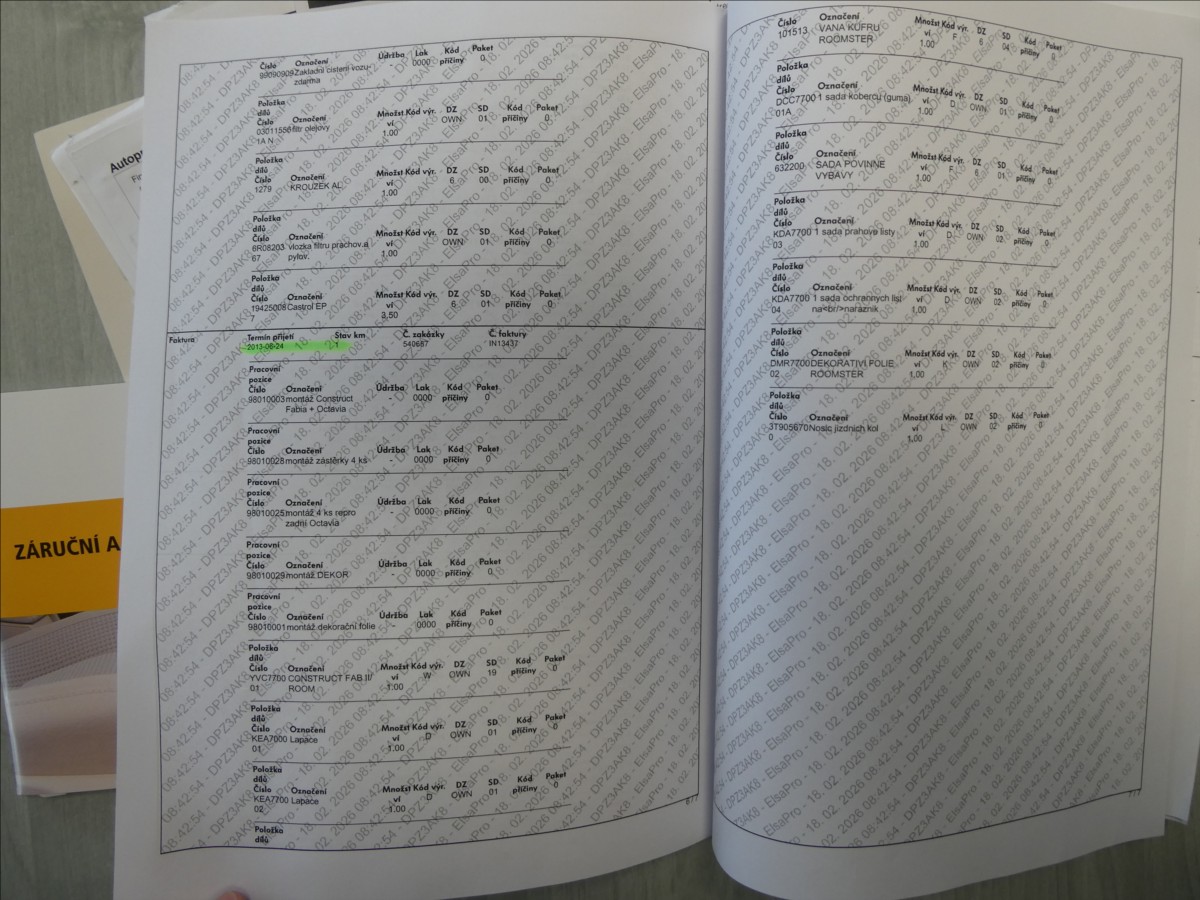 Číslo Označení Údržba Lak Kód Paket
99090909 Základní čištění vozu- - 0000 příčiny 0
zdarma
Položka
dílů
Číslo Označení Množst Kód výr. DZ SD Kód Paket
03011556 filtr olejovy ví OWN 01 příčiny 0
1A N 1.00
Položka
dílů
Číslo Označení Množst Kód výr. DZ SD Kód Paket
1279 KROUZEK AL. ví 6 00 příčiny 0
1.00
Položka
dílů
Číslo Označení Množst Kód výr. DZ SD Kód Paket
6R08203 vlozka filtru prachov.a ví OWN 01 příčiny 0
67 pylov. 1.00
Položka
dílů
Číslo Označení Množst Kód výr. DZ SD Kód Paket
19425008 Castrol EP ví 6 01 příčiny 0
7 3,50
Faktura Termín přijetí Stav km Č. zakázky Č. faktury
2013-06-24 1 540687 IN13437
Pracovní
pozice
Číslo Označení Údržba Lak Kód Paket
98010003 montáž Construct - 0000 příčiny 0
Fabia + Octavia
Pracovní
pozice
Číslo Označení Údržba Lak Kód Paket
98010028 montáž zástěrky 4 ks - 0000 příčiny 0
Pracovní
pozice
Číslo Označení Údržba Lak Kód Paket
98010025 montáž 4 ks repro - 0000 příčiny 0
zadní Octavia
Pracovní
pozice
Číslo Označení Údržba Lak Kód Paket
98010029 montáž DEKOR - 0000 příčiny 0
Pracovní
pozice
Číslo Označení Údržba Lak Kód Paket
98010001 montáž dekorační folie - 0000 příčiny 0
Položka
dílů
Číslo Označení Množst Kód výr. DZ SD Kód Paket
YVC7700 CONSTRUCT FAB II/ ví W OWN 19 příčiny 0
01 ROOM 1.00
Položka
dílů
Číslo Označení Množst Kód výr. DZ SD Kód Paket
KEA7000 Lapace ví D OWN 01 příčiny 0
01 1.00
Položka
dílů
Číslo Označení Množst Kód výr. DZ SD Kód Paket
KEA7700 Lapace ví D OWN 01 příčiny 0
02 1.00
Položka
dílů
Číslo Označení Množst Kód výr. DZ SD Kód Paket
101513 VANA KUFRU ví F 6 04 příčiny 0
ROOMSTER 1.00
Položka
dílů
Číslo Označení Množst Kód výr. DZ SD Kód Paket
DCC7700 1 sada kobercu (guma) ví D OWN 01 příčiny 0
01A 1.00
Položka
dílů
Číslo Označení Množst Kód výr. DZ SD Kód Paket
632200 SADA POVINNE ví F 6 01 příčiny 0
VYBAVY 1.00
Položka
dílů
Číslo Označení Množst Kód výr. DZ SD Kód Paket
KDA7700 1 sada prahove listy ví D OWN 02 příčiny 0
03 1.00
Položka
dílů
Číslo Označení Množst Kód výr. DZ SD Kód Paket
KDA7700 1 sada ochrannych list ví D OWN 02 příčiny 0
04 na<br/>naraznik 1,00
Položka
dílů
Číslo Označení Množst Kód výr. DZ SD Kód Paket
DMR7700 DEKORATIVI FOLIE ví K OWN 02 příčiny 0
02 ROOMSTER 1,00
Položka
dílů
Číslo Označení Množst Kód výr. DZ SD Kód Paket
3T905670 Nosic jizdnich kol ví L OWN 02 příčiny 0
0 1,00
ZÁRUČNÍ A
DPZ3AK8 - ElsaPro - 18. 02. 2026 08:42:54